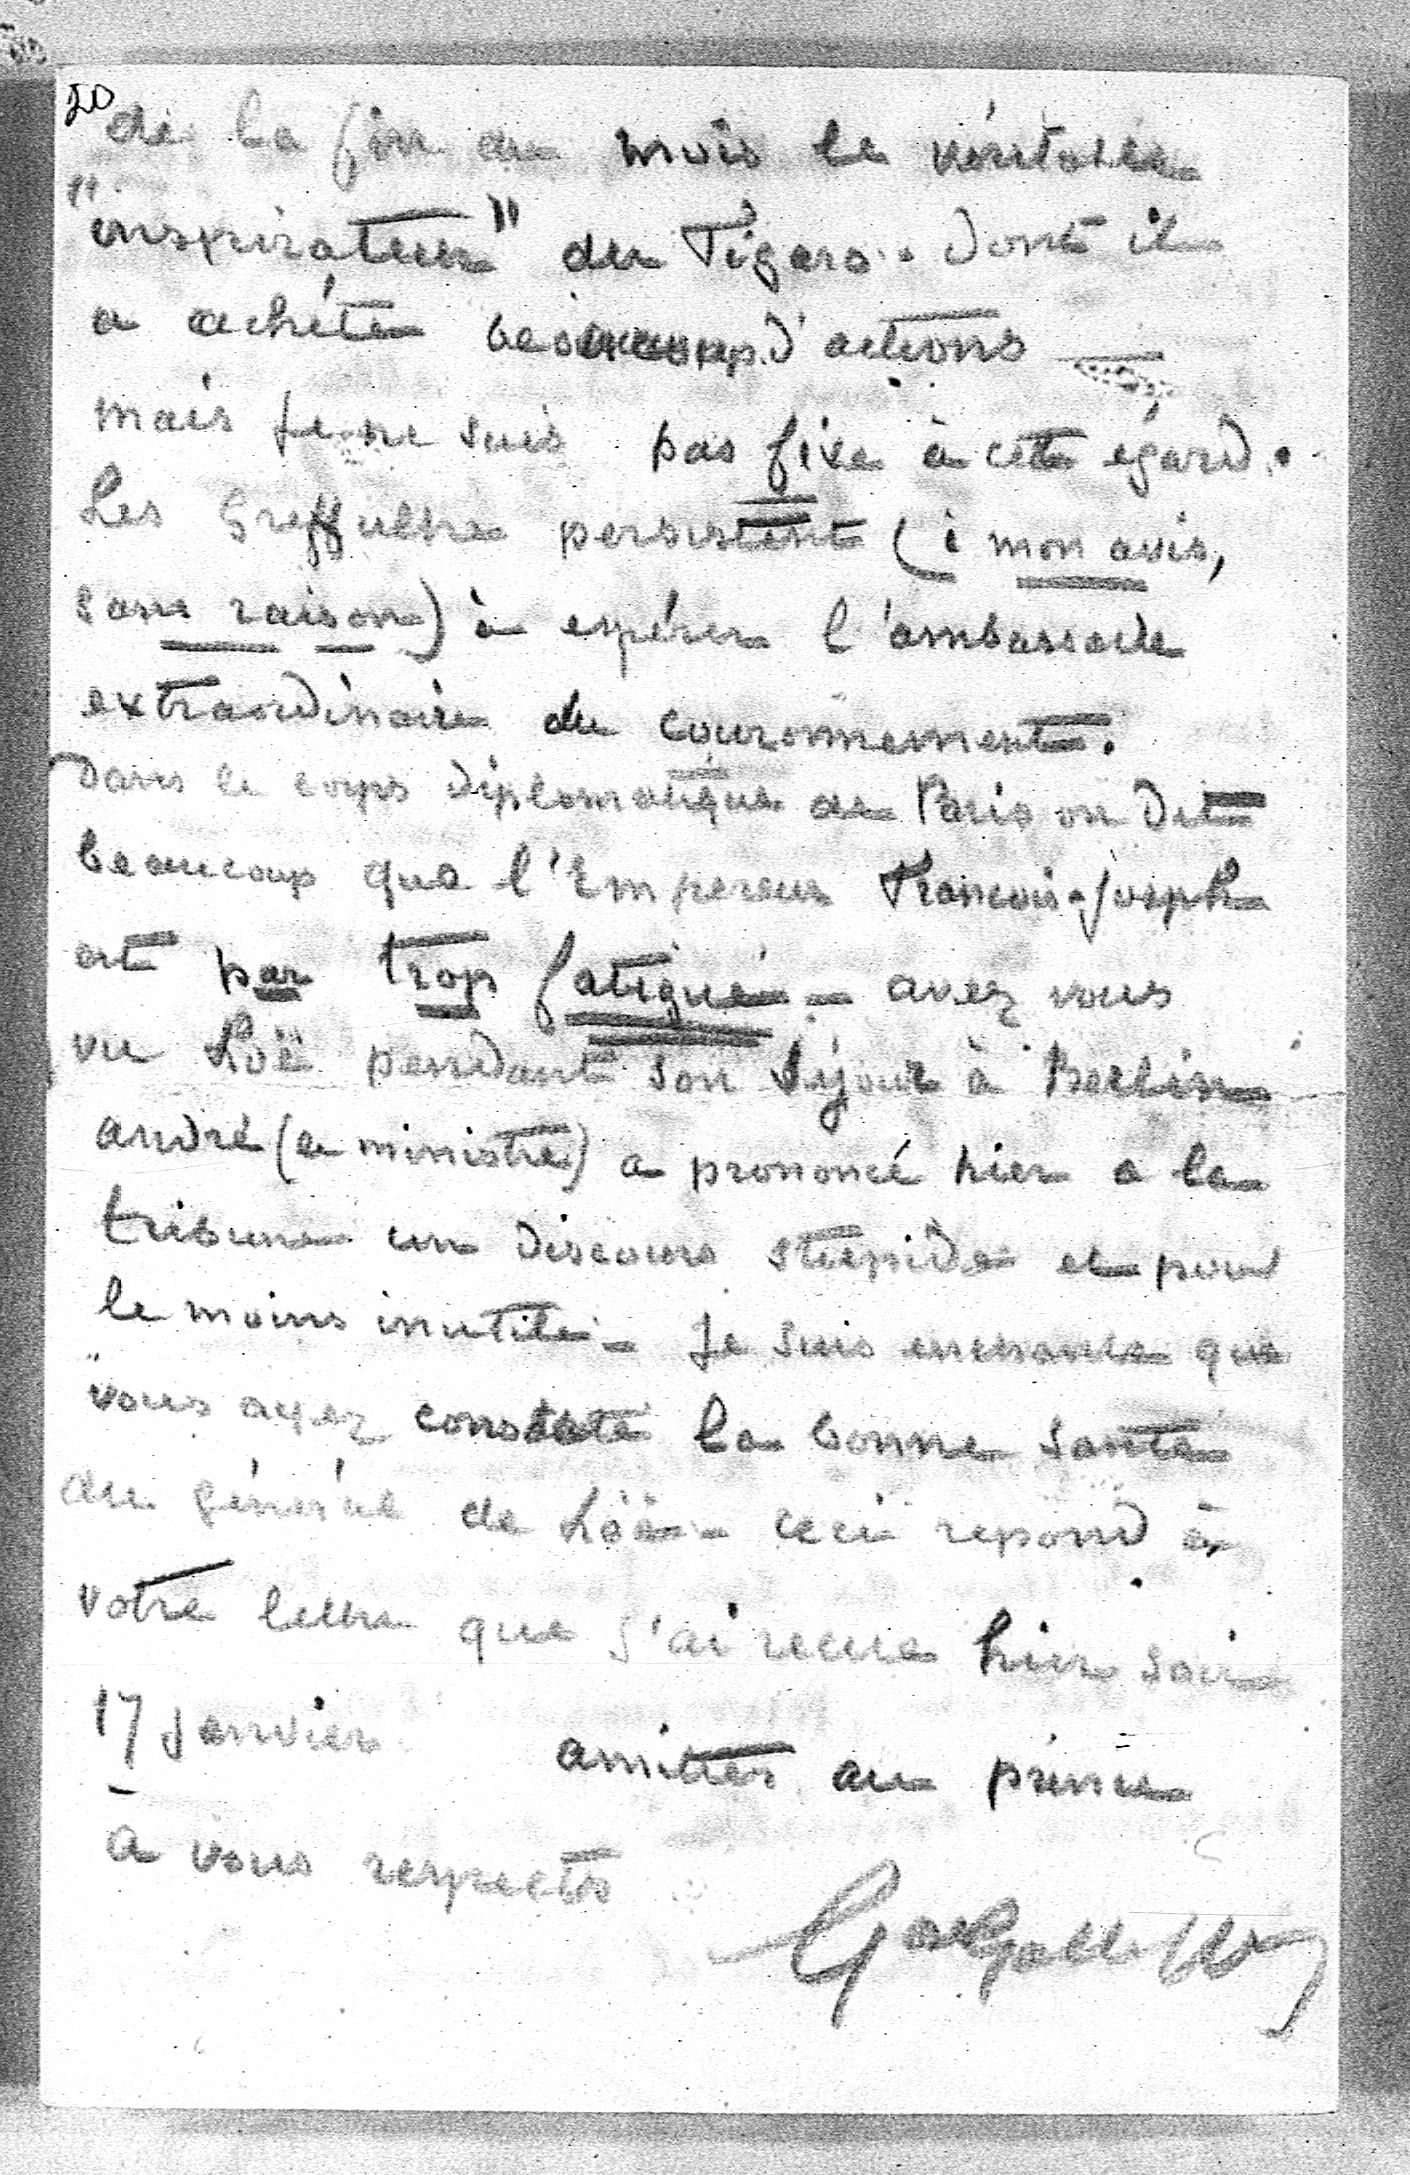 20
de la fin du mois le véritable
"inspirateur" du Figaro. dont il
a acheté beaucoup d'actions —
mais je ne suis pas fixé à cet égard.
Les Greffulhe persistent (à mon avis,
sans raison) à espérer l'ambassade
extraordinaire du couronnement.
Dans le corps diplomatique de Paris on dit
beaucoup que l'Empereur François-Joseph
est par trop fatigué — avez vous
vu Loë pendant son séjour à Berlin
André (le ministre) a prononcé hier a la
tribune un discours stupide et pour
le moins inutile — Je suis enchanté que
vous ayez constaté la bonne santé
du général de Loë — ceci repond à
votre lettre que j'ai recue hier soir
17 Janvier amitiés au prince
à vous respects
Gal Galliffet